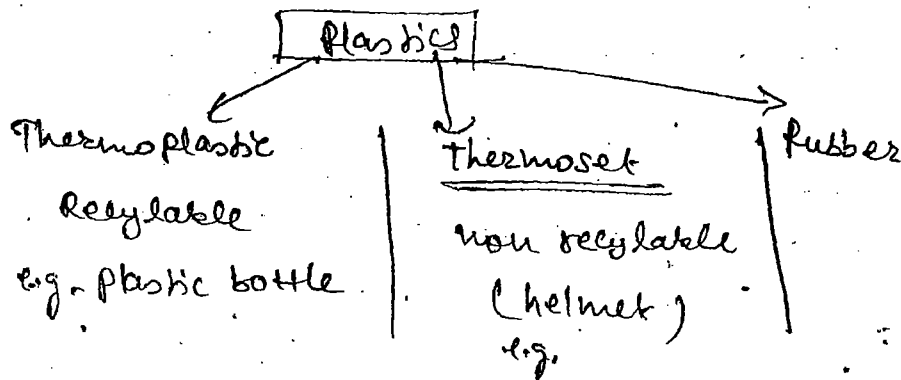 Plastics
Thermoplastic
Recylable
e.g. Plastic bottle
Thermoset
non recylable
(helmet)
e.g.
Rubber